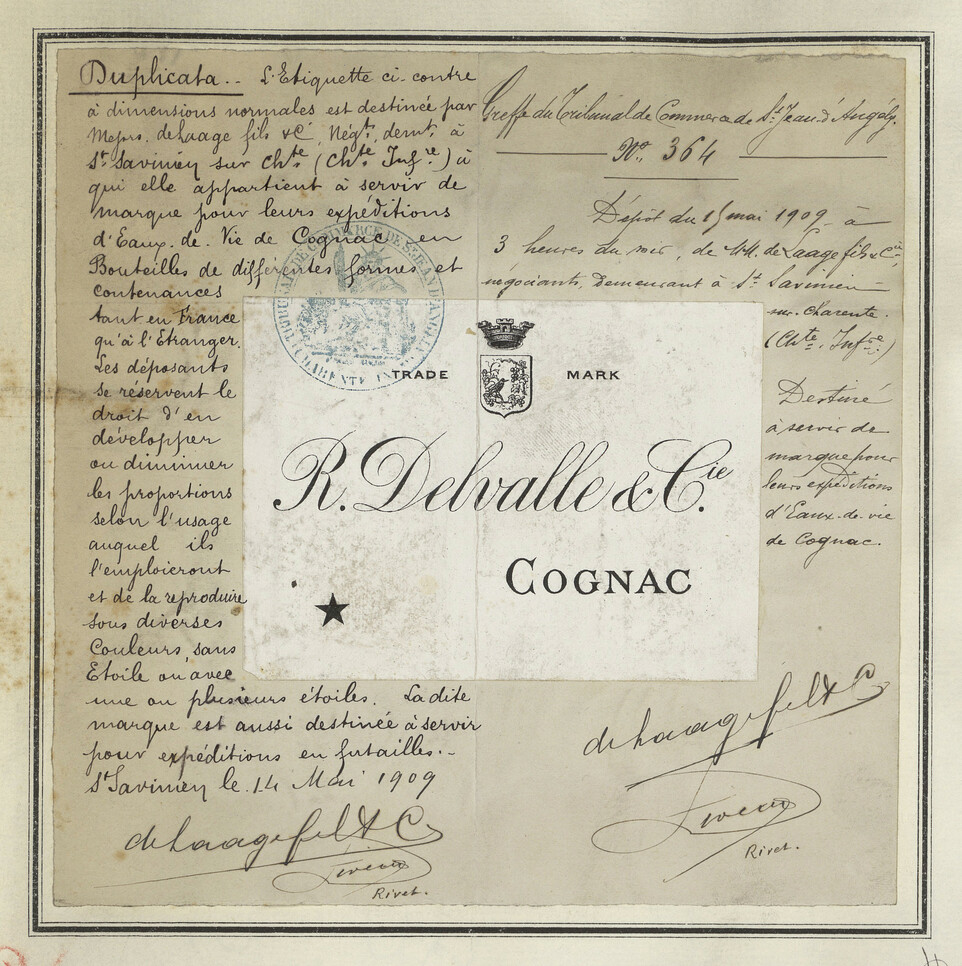 Duplicata.. L'Etiquette ci-contre
à dimensions normales est destinée par
Messrs. de Laage fils & Cie, Négts, demt. à
St. Savinien sur Chte (Chte Infre) à
qui elle appartient à servir de
marque pour leurs expéditions
d'Eaux-de-Vie de Cognac en
Bouteilles de différentes formes et
contenances
tant en France
qu'à l'Etranger.
Les déposants
se réservent le
droit d'en
développer
ou diminuer
les proportions
selon l'usage
auquel ils
l'emploieront
et de la reproduire
sous diverses
Couleurs, sans
Etoile ou avec
une ou plusieurs étoiles. La dite
marque est aussi destinée à servir
pour expéditions en futailles.-
St Savinien le 14 Mai 1909
de Laage fils & C
Rivet.
Greffe du Tribunal de Commerce de St. Jean-d'Angély.
No. 364
Dépôt du 15 mai 1909 à
3 heures du soir, de MM. de Laage fils & Cie,
négociants, Demeurant à St. Savinien
sur-Charente.
(Chte Infre.)
Destiné
à servir de
marque pour
leurs expéditions
d'Eaux-de-vie
de Cognac.
de Laage fils & C
Rivet.
TRIBUNAL DE COMMERCE DE ST JEAN D'ANGELY
CHARENTE INFRE
TRADE MARK
R. Delvalle & Cie.
COGNAC